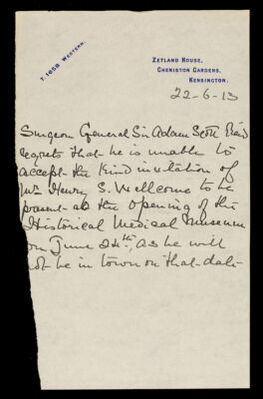 T. 1658 WESTERN.
ZETLAND HOUSE,
CHENISTON GARDENS,
KENSINGTON.
22-6-13
Surgeon General Sir Adam Scott Reid
regrets that he is unable to
accept the kind invitation of
Mr Henry S. Wellcome to be
present at the opening of the
Historical Medical Museum
on June 24th, as he will
not be in town on that date